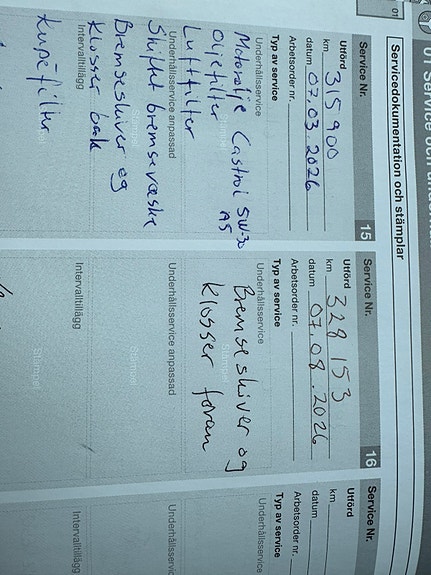 01
01 Service och
Servicedokumentation och stämplar
Service Nr.
15
Utförd
km 315900
datum 07.03.2026
Arbetsorder nr.
Typ av service
Underhållsservice
Motorolje Castrol 5W-30
A5
Oljefilter
Luftfilter
Underhållsservice anpassad
Skiftet bremsevæske
Bremseskiver og
Klosser bak
Intervalltillägg
Kupefilter
Service Nr.
16
Utförd
km 328 153
datum 07.08.2026
Arbetsorder nr.
Typ av service
Underhållsservice
Bremseskiver og
Klosser foran
Underhållsservice anpassad
Stämpel
Intervalltillägg
Stämpel
Service Nr.
Utförd
km
datum
Arbetsorder nr.
Typ av service
Underhållsservice
Underhållsservic
Intervalltillägg